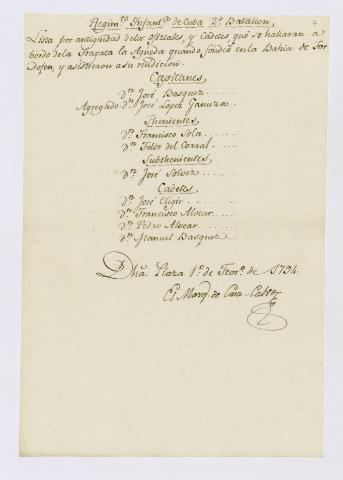 Regim.to Infant.a de Cuba 2.o Batallon,
Lista por antiguedad delos ofiziales, y Cadetes que se hallaran a
bordo dela Fragata la Agueda quando fondeó en la Bahia de For
Dofen, y asistieron a su rendicion.
Capitanes
Dn. José Basquez
Agregado Dn. José Lopez Ganuza
Thenientes
Dn. Francisco Sola
Dn. Felix del Corral
Subthenientes
Dn. José Solvez
Cadetes
Dn. José Eligir
Dn. Francisco Alvear
Dn. Pedro Alvear
Dn. Manuel Basquez
Dha. Plaza 1.o de Feor.o de 1794
El Marq.s de Casa-Calvo